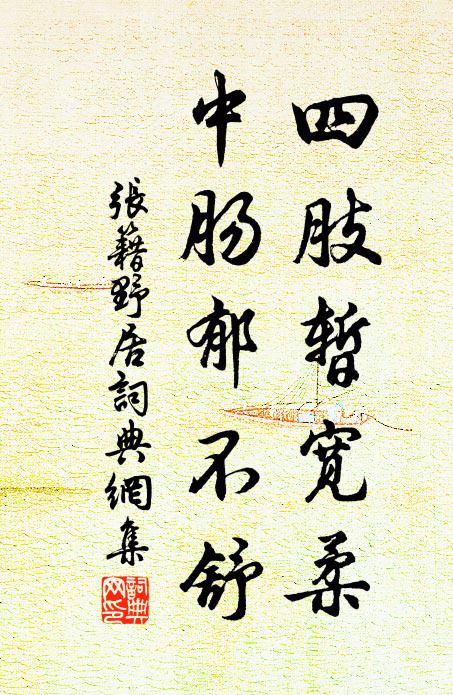 四肢暫寬柔
中肠郁不舒
張籍野居詞典網集
詞典
网印